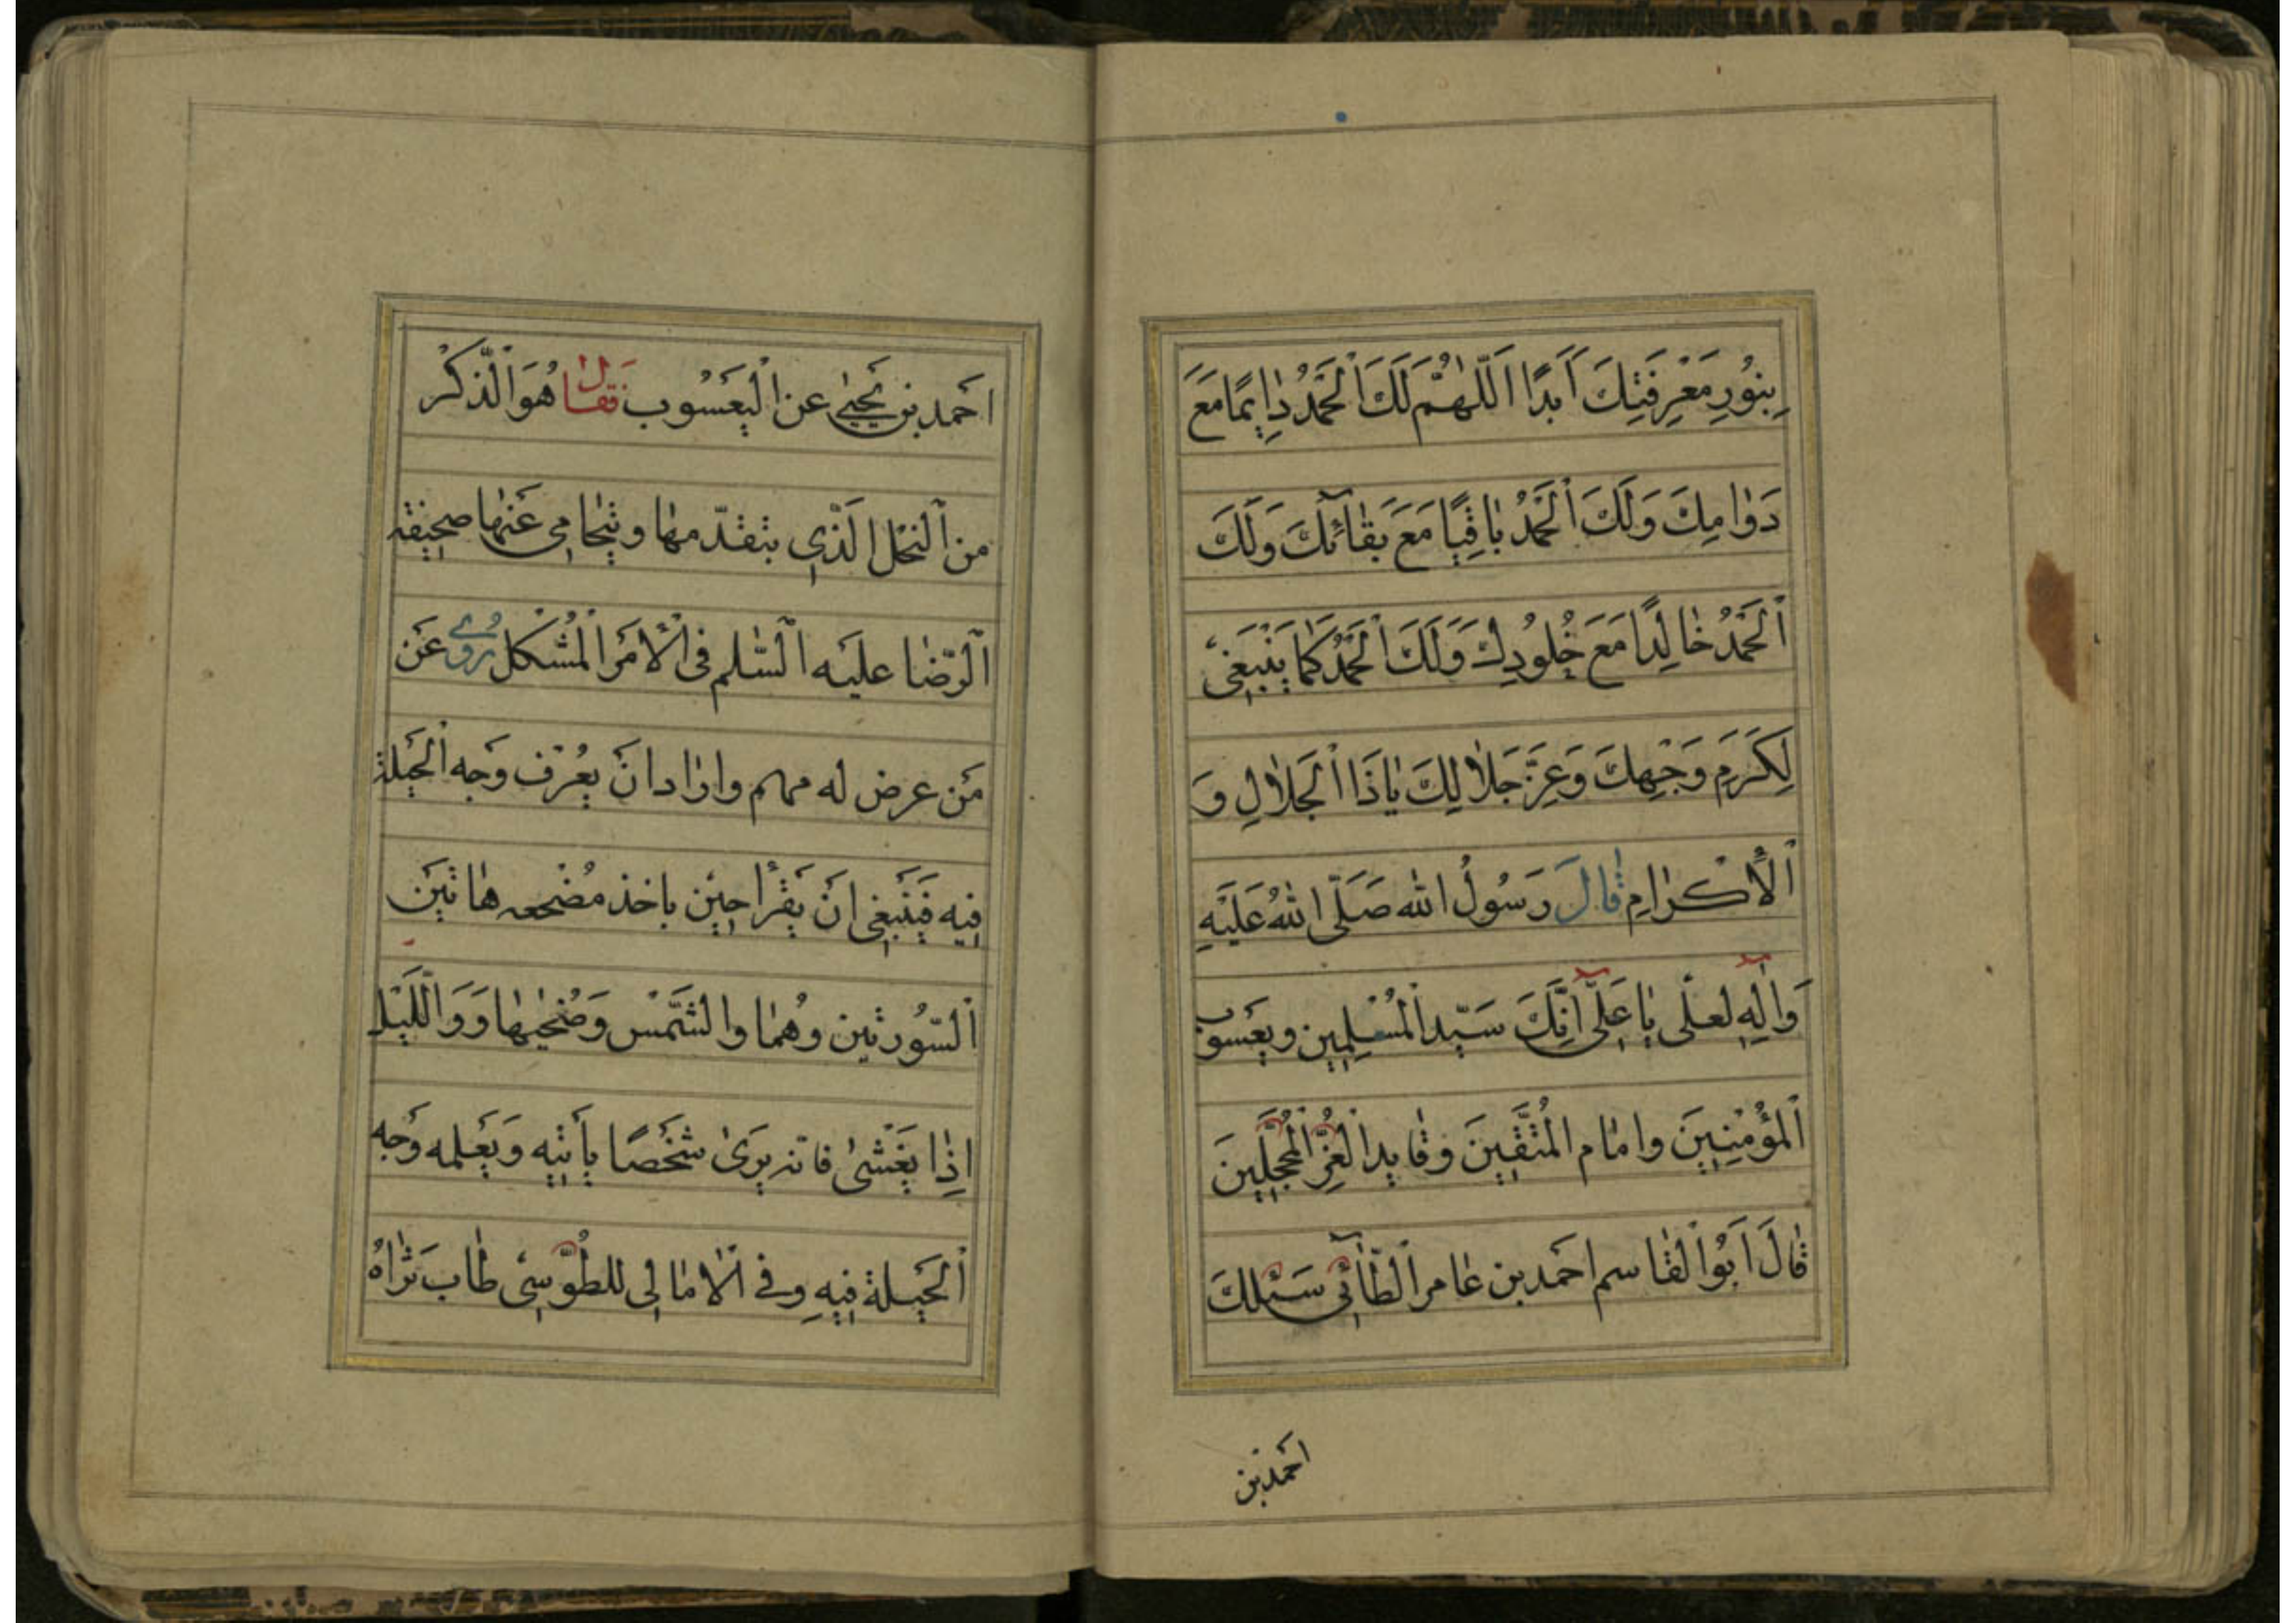 بِنُورِ مَعْرِفَتِكَ اَبَدًا اَللّٰهُمَّ لَكَ الْحَمْدُ دٰاِيمًا مَعَ
دَوٰامِكَ وَلَكَ الْحَمْدُ بٰاقِيًا مَعَ بَقٰائِكَ وَلَكَ
الْحَمْدُ خٰالِدًا مَعَ خُلُودِكَ وَلَكَ الْحَمْدُ كَمٰا يَنْبَغِى
لِكَرَمِ وَجْهِكَ وَعِزِّ جَلٰالِكَ يٰاذَا الْجَلٰالِ وَ
الْاِكْرٰامِ قٰالَ رَسُولُ الله صَلَّى اللهُ عَلَيْهِ
وَاٰلِهِ لعلى يٰا عَلِىُّ اِنَّكَ سَيّد الْمُسْلِمِين ويعسوب
الْمُؤْمِنِينَ وامٰام الْمُتَّقِينَ وقٰايد الْغُرِّ الْمُحَجَّلِينَ
قٰالَ اَبُو الْقٰاسم احمد بن عٰامر الطّٰائِى سَئلتُ
احمد بن
احمد بن يَحْيىٰ عن الْيَعْسُوب فَقٰال هُوَ الذَّكَرُ
من النَّحْل الَّذِى يتقدّمهٰا ويُحٰامِى عَنْهٰا صحيفة
الرّضٰا عليه السّلم فى الْاَمْر الْمُشْكل رُوِىَ عَن
مَن عرض له مهم واراد ان يَعْرف وَجه الْحِيلة
فيه فَيَنْبغى ان يَقْرأ حِين ياخذ مَضْجعه هٰاتَيْن
السّورتين وهُمٰا والشَّمْس وَضُحٰيهٰا وَوَاللَّيْل
اِذٰا يَغْشىٰ فانه يَرَىٰ شَخْصًا يأتيه وَيُعلمه وَجه
الْحِيلة فِيهِ وفى الْاَمٰالِى للطُّوسِى طٰاب ثَرٰاهُ